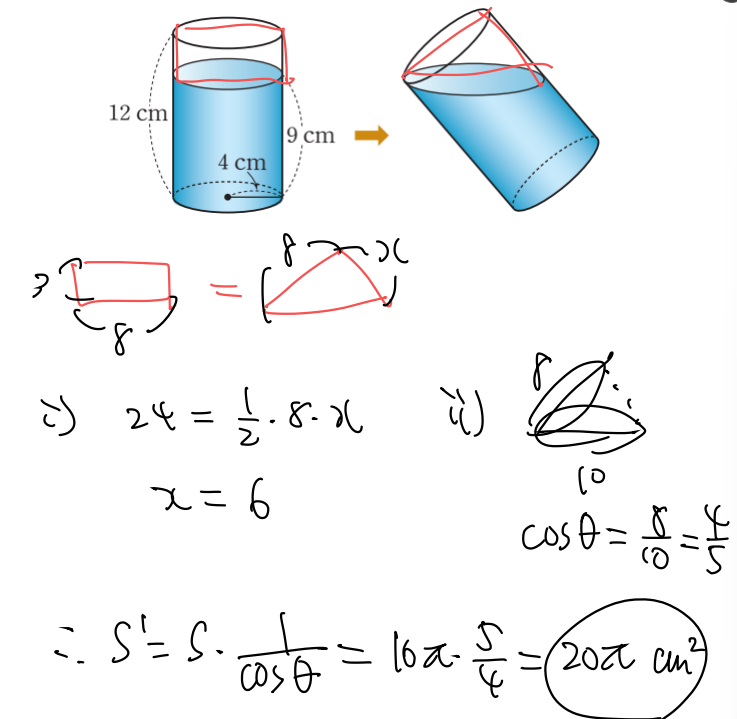 12 cm
9 cm
4 cm
8 x
3 =
8
i) 24 = 1/2 · 8 · x
ii) 8
x = 6
10
cosθ = 8/10 = 4/5
∴ S' = S · 1/cosθ = 16π · 5/4 = 20π cm²